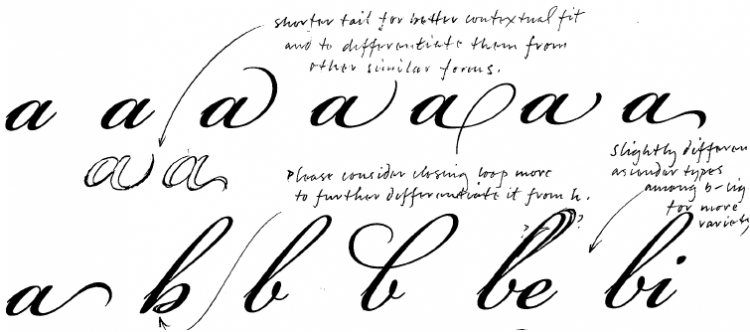 shorter tail for better contextual fit
and to differentiate them from
other similar forms.
a a a a a a a
a a
Please consider closing loop more
to further differentiate it from h.
Slightly differen
ascender types
among b-lig
for more
variety
? ?
a b b b be bi